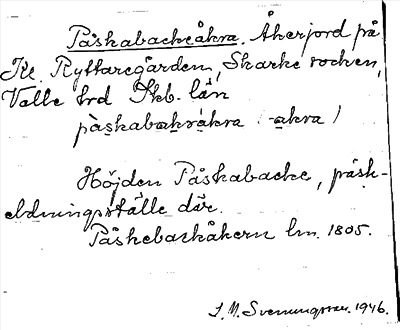 Påskabackeåkra. Åkerjord på
Kl. Ryttaregården, Skarke socken,
Valle hrd Skb. län
påskabakråkra (-akra)
Höjden Påskabacke, påsk-
eldningsställe där.
Påskebackåkern lm. 1805.
J. M. Svenungsson. 1946.